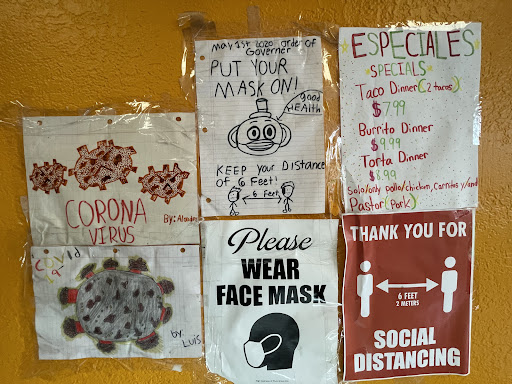 May 1st 2020 order of
Governer
PUT YOUR
MASK ON!
good
HEALTH
KEEP your DISTANCE
of 6 Feet!
6 Feet
ESPECIALES
SPECIALS
Taco Dinner (2 tacos)
$7.99
Burrito Dinner
$9.99
Torta Dinner
Solo/only pollo/chicken, Carnitas y/and
Pastor (Pork)
CORONA
VIRUS
By:
Covid
by:
Luis
Please
WEAR
FACE MASK
THANK YOU FOR
6 FEET
2 METERS
SOCIAL
DISTANCING